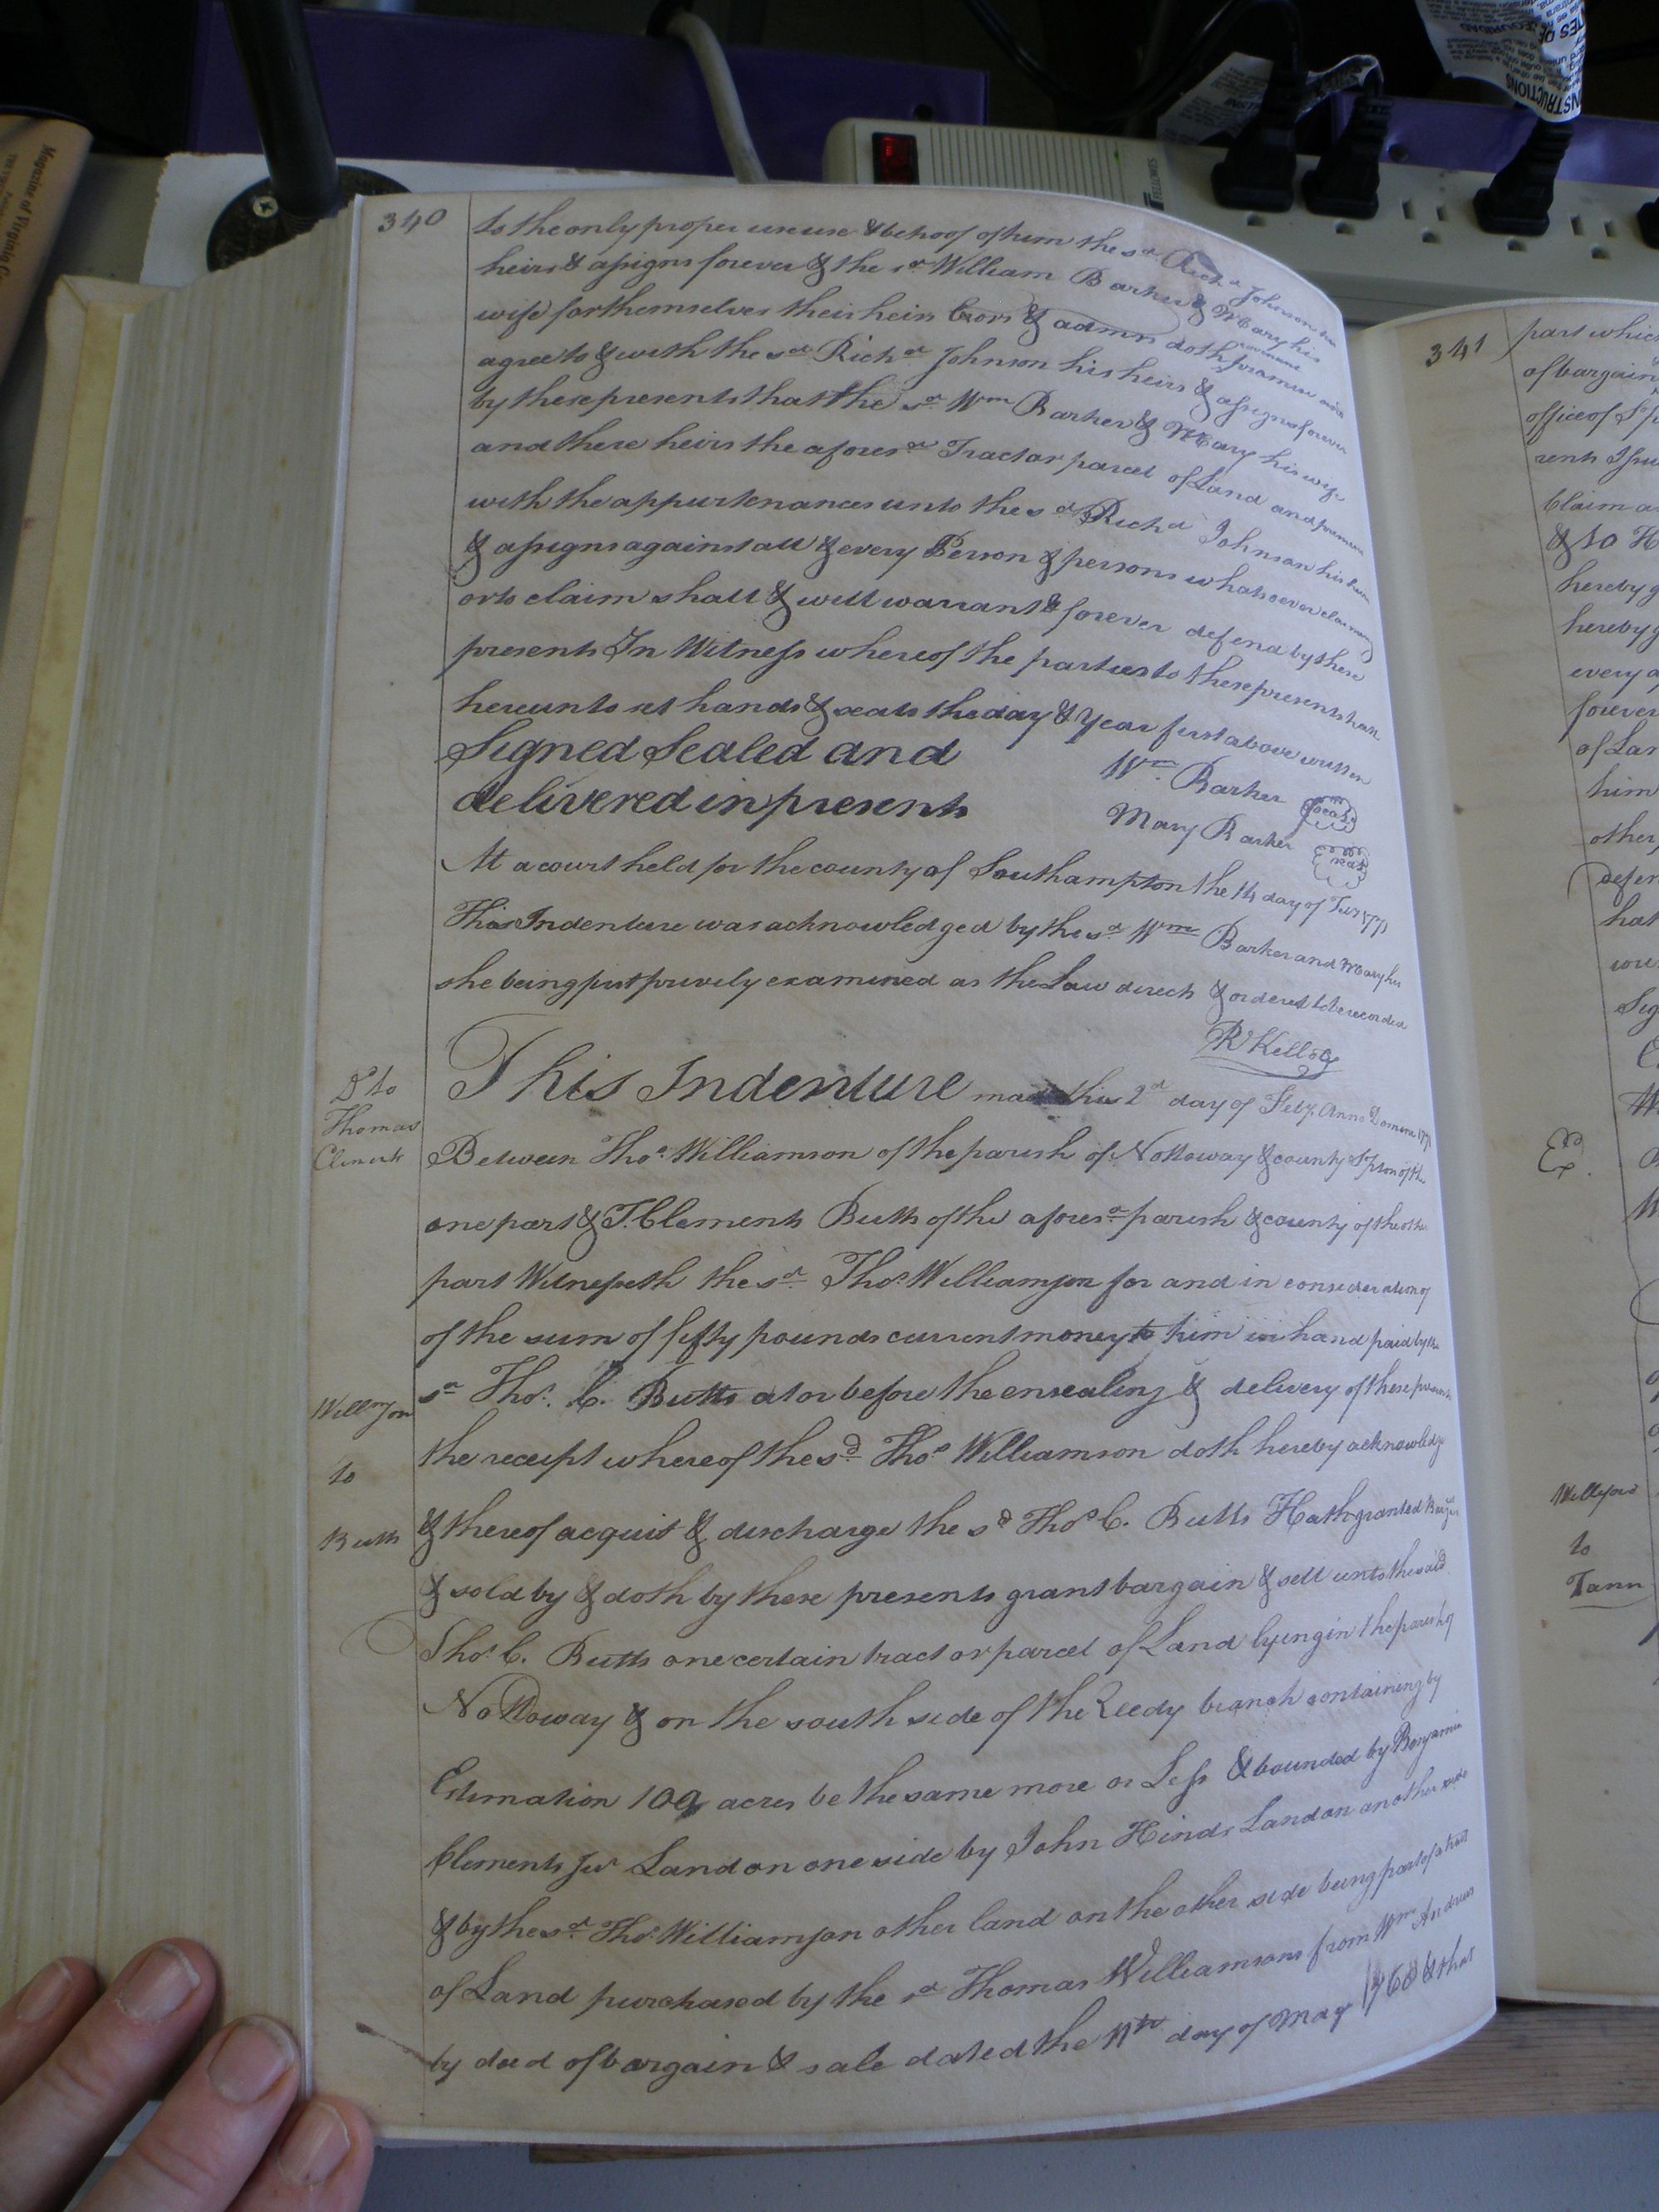 340
to the only proper use use & behoof of him the sd Richd Johnson his
heirs & assigns forever & the sd William Barker & Mary his
wife for themselves their heirs Exors & admrs doth
covenant
promise and
agree to & with the sd Richd Johnson his heirs & assigns forever
by these presents that the sd Wm Barker & Mary his wife
and there heirs the aforesd Tract or parcel of Land and premises
with the appurtenances unto the sd Richd Johnson his heirs
& assigns against all & every Person & persons whatsoever claiming
or to claim shall & will warrant & forever defend by these
presents In Witness whereof the parties to these presents have
hereunto set hands & seals the day & Year first above written
Signed Sealed and
delivered in presents
Wm Barker seal
Mary Barker seal
At a court held for the county of Southampton the 14 day of
This Indenture was acknowledged by the sd Wm Barker and Mary his
she being first privily examined as the Law directs & ordered to be recorded
R Kello
Dd to
Thomas
Clements
This Indenture made this 2d day of Feby Anno Domini
Between Thos Williamson of the parish of Nottoway & county Spton of the
one part & T. Clements Butts of the aforesd parish & county of the other
part Witnesseth the sd Thos Williamson for and in consideration of
of the sum of fifty pounds current money to him in hand paid by the
sd Thos C. Butts at or before the ensealing & delivery of these presents
the receipt whereof the sd Thos Williamson doth hereby acknowledge
& thereof acquit & discharge the sd Thos C. Butts Hath granted
& sold by & doth by these presents grant bargain & sell unto the said
Thos C. Butts one certain tract or parcel of Land lying in the parish of
Nottoway & on the south side of the Reedy branch containing by
Estimation 100 acres be the same more or Less & bounded by Benjamin
Clements Jur Land on one side by John Hinds Land on another side
& by the sd Thos Williamson other land on the other side being part of a tract
of Land purchased by the sd Thomas Williamsons from Wm Andrews
by deed of bargain & sale dated the 11th day of May 1768 & that
Willmson
to
Butts
341
part which
of bargain
office of Sp
rents Issu
Claim a
& to H
hereby g
hereby g
every a
forever
of Lan
him
other
defen
hat
Sig
Exd.
to
Tann
Magazine of Virginia
FELLOWES
INSTRUCTIONS